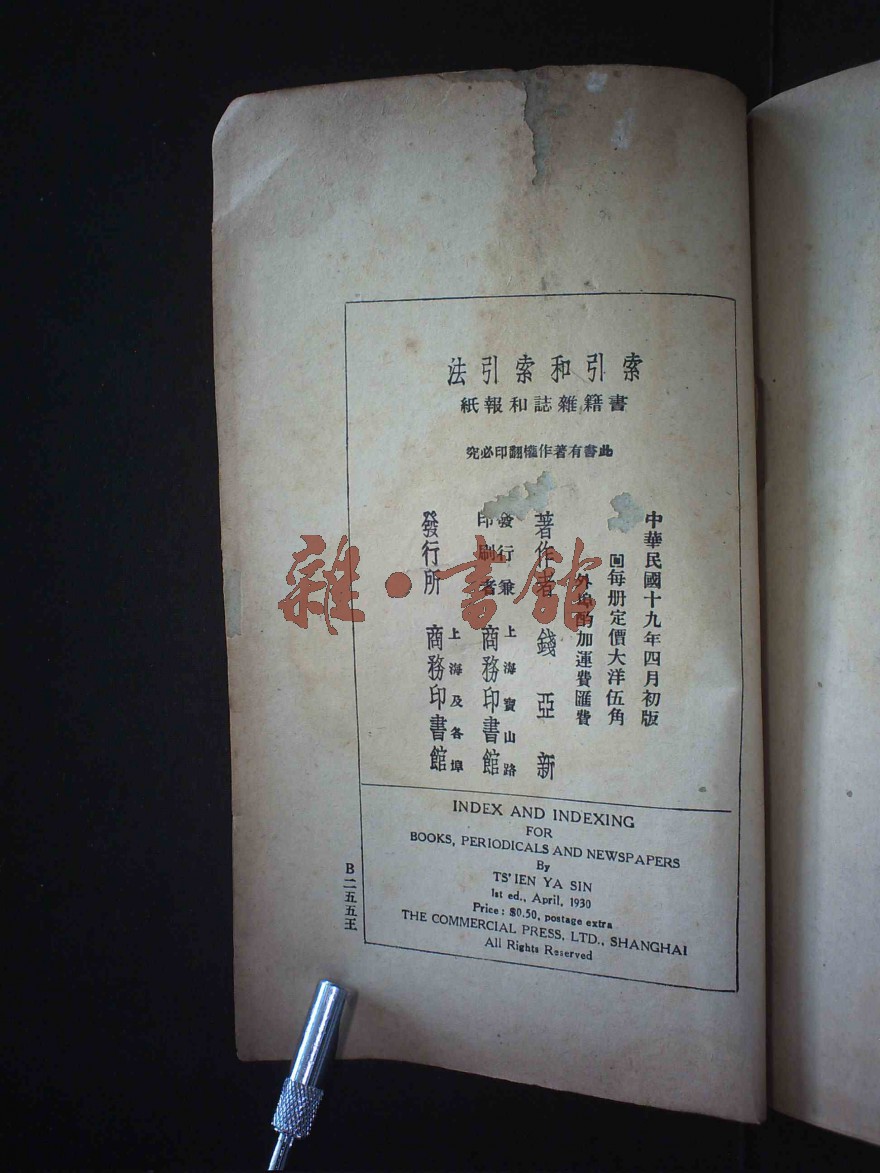 索引和索引法
書籍雜誌和報紙
此書有著作權翻印必究
中華民國十九年四月初版
回每册定價大洋伍角
外埠酌加運費匯費
著作者 錢亞新
發行兼
印刷者
上海寶山路
商務印書館
發行所
上海及各埠
商務印書館
INDEX AND INDEXING
FOR
BOOKS, PERIODICALS AND NEWSPAPERS
By
TS'IEN YA SIN
1st ed., April, 1930
Price: $0.50, postage extra
THE COMMERCIAL PRESS, LTD., SHANGHAI
All Rights Reserved
B二五五王
雜·書館